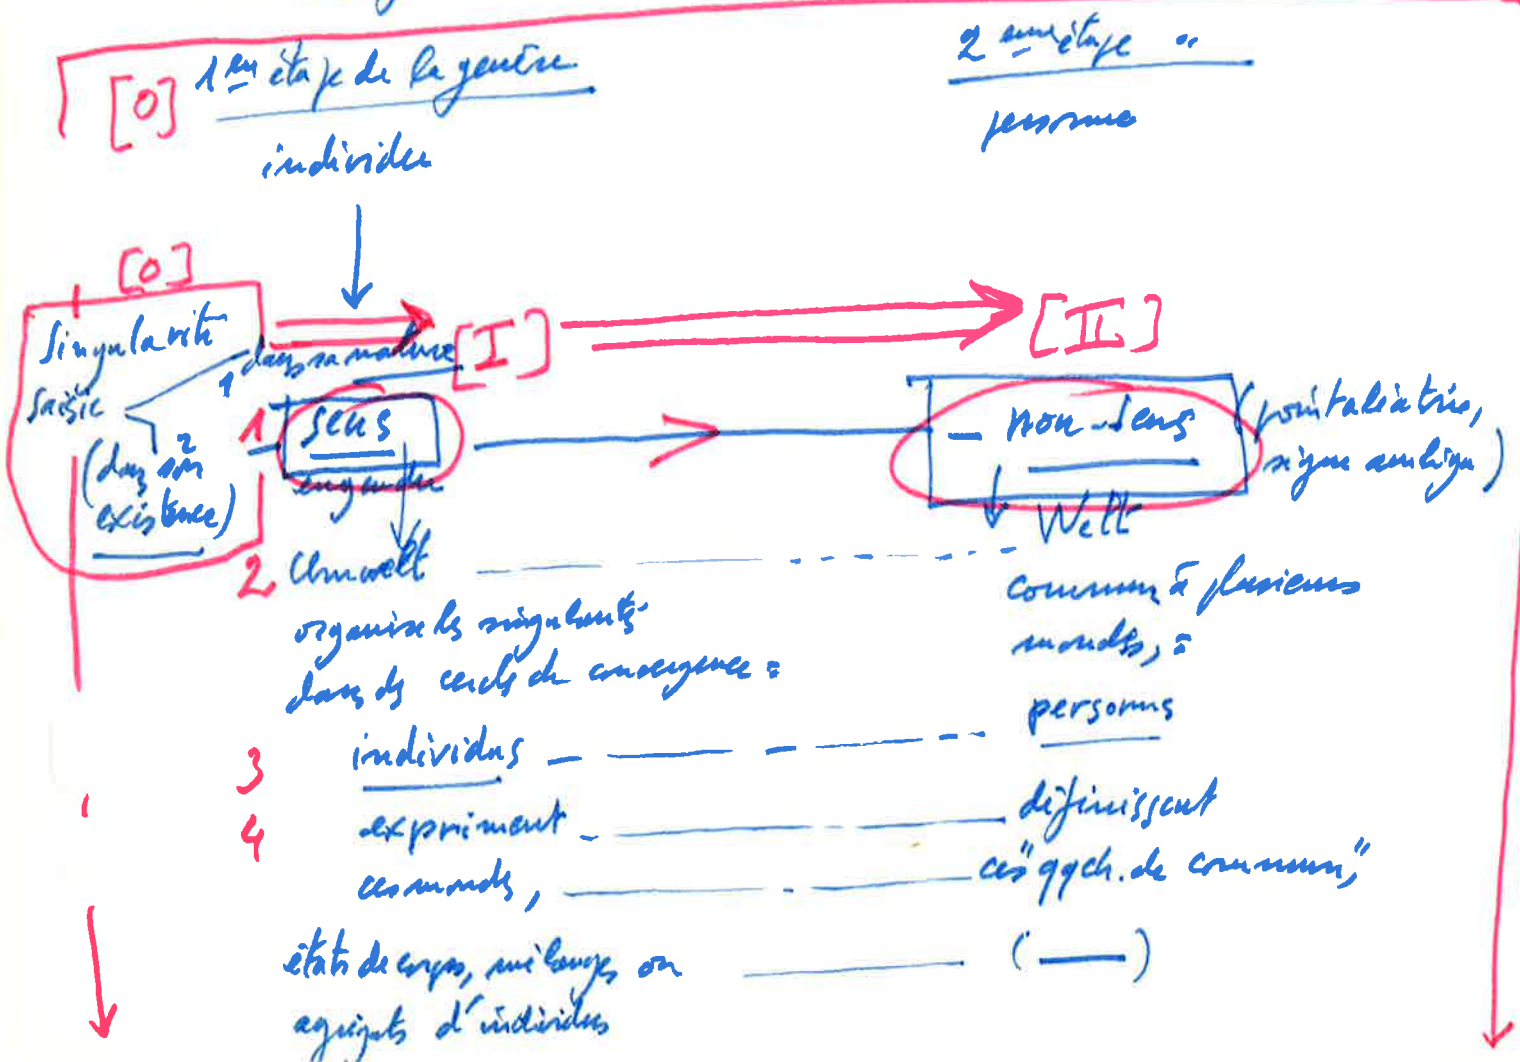 [0] 1ere étape de la genèse
individu
2eme étape "
personne
[0]
Singularité
saisie
1 dans sa nature
2
(dans son
existence)
[I]
[II]
1 sens
engendre
- non-sens
(point aléatoire,
signe ambigu)
2 Umwelt
Welt
organise les singularités
dans des cercles de convergence =
commun à plusieurs
mondes, =
3 individus
personnes
4 expriment
définissent
ces mondes,
ces "qqch. de commun",
états de corps, mélanges ou
(—)
agrégats d'individus